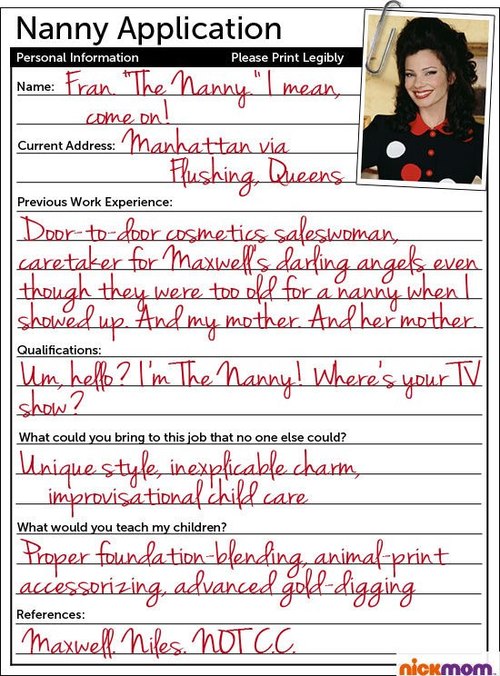 Nanny Application
Personal Information Please Print Legibly
Name: Fran. "The Nanny." I mean,
come on!
Current Address: Manhattan via
Flushing, Queens
Previous Work Experience:
Door-to-door cosmetics saleswoman,
caretaker for Maxwell's darling angels even
though they were too old for a nanny when I
showed up. And my mother. And her mother.
Qualifications:
Um, hello? I'm The Nanny! Where's your TV
show?
What could you bring to this job that no one else could?
Unique style, inexplicable charm,
improvisational child care
What would you teach my children?
Proper foundation-blending, animal-print
accessorizing, advanced gold-digging
References:
Maxwell. Niles. NOT C.C.
nickmom.